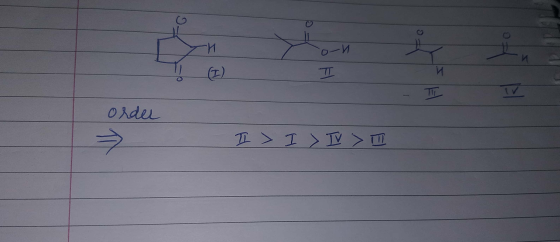 O O O O
H O-H H
O (I) II H
III IV
order
⇒ II > I > IV > III